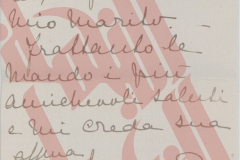 mio marito -
frattanto le
mando i più
amichevoli saluti
e mi creda sua
affma